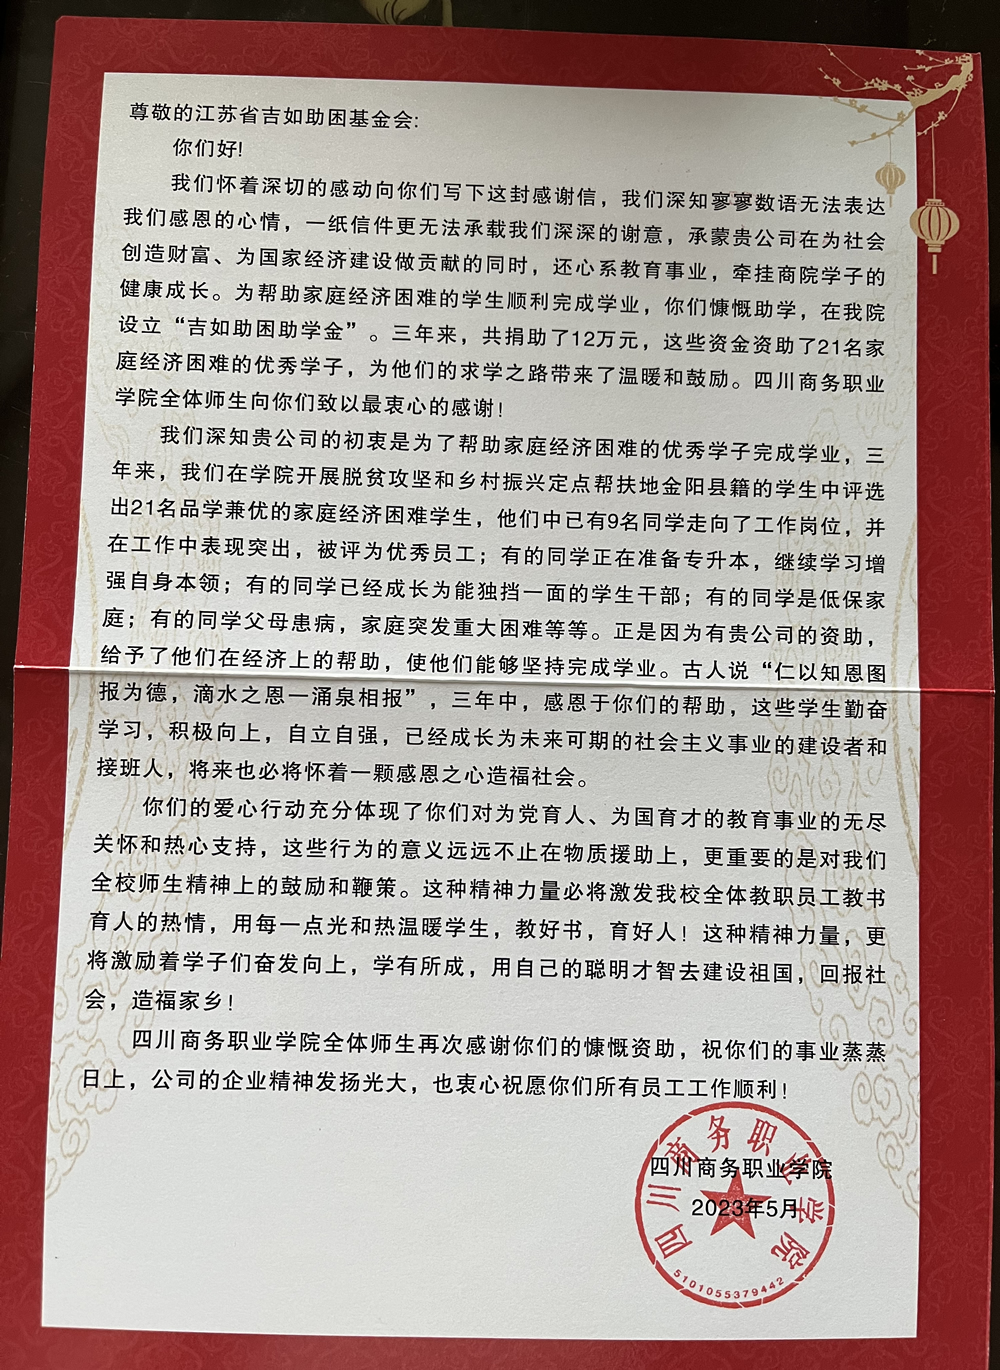 尊敬的江苏省吉如助困基金会:
你们好!
我们怀着深切的感动向你们写下这封感谢信，我们深知寥寥数语无法表达
我们感恩的心情，一纸信件更无法承载我们深深的谢意，承蒙贵公司在为社会
创造财富、为国家经济建设做贡献的同时，还心系教育事业，牵挂商院学子的
健康成长。为帮助家庭经济困难的学生顺利完成学业，你们慷慨助学，在我院
设立“吉如助困助学金”。三年来，共捐助了12万元，这些资金资助了21名家
庭经济困难的优秀学子，为他们的求学之路带来了温暖和鼓励。四川商务职业
学院全体师生向你们致以最衷心的感谢!
我们深知贵公司的初衷是为了帮助家庭经济困难的优秀学子完成学业，三
年来，我们在学院开展脱贫攻坚和乡村振兴定点帮扶地金阳县籍的学生中评选
出21名品学兼优的家庭经济困难学生，他们中已有9名同学走向了工作岗位，并
在工作中表现突出，被评为优秀员工；有的同学正在准备专升本，继续学习增
强自身本领；有的同学已经成长为能独挡一面的学生干部；有的同学是低保家
庭；有的同学父母患病，家庭突发重大困难等等。正是因为有贵公司的资助，
给予了他们在经济上的帮助，使他们能够坚持完成学业。古人说“仁以知恩图
报为德，滴水之恩一涌泉相报”，三年中，感恩于你们的帮助，这些学生勤奋
学习，积极向上，自立自强，已经成长为未来可期的社会主义事业的建设者和
接班人，将来也必将怀着一颗感恩之心造福社会。
你们的爱心行动充分体现了你们对为党育人、为国育才的教育事业的无尽
关怀和热心支持，这些行为的意义远远不止在物质援助上，更重要的是对我们
全校师生精神上的鼓励和鞭策。这种精神力量必将激发我校全体教职员工教书
育人的热情，用每一点光和热温暖学生，教好书，育好人! 这种精神力量，更
将激励着学子们奋发向上，学有所成，用自己的聪明才智去建设祖国，回报社
会，造福家乡!
四川商务职业学院全体师生再次感谢你们的慷慨资助，祝你们的事业蒸蒸
日上，公司的企业精神发扬光大，也衷心祝愿你们所有员工工作顺利!
四川商务职业学院
2023年5月
四川商务职业学院
5101055379442